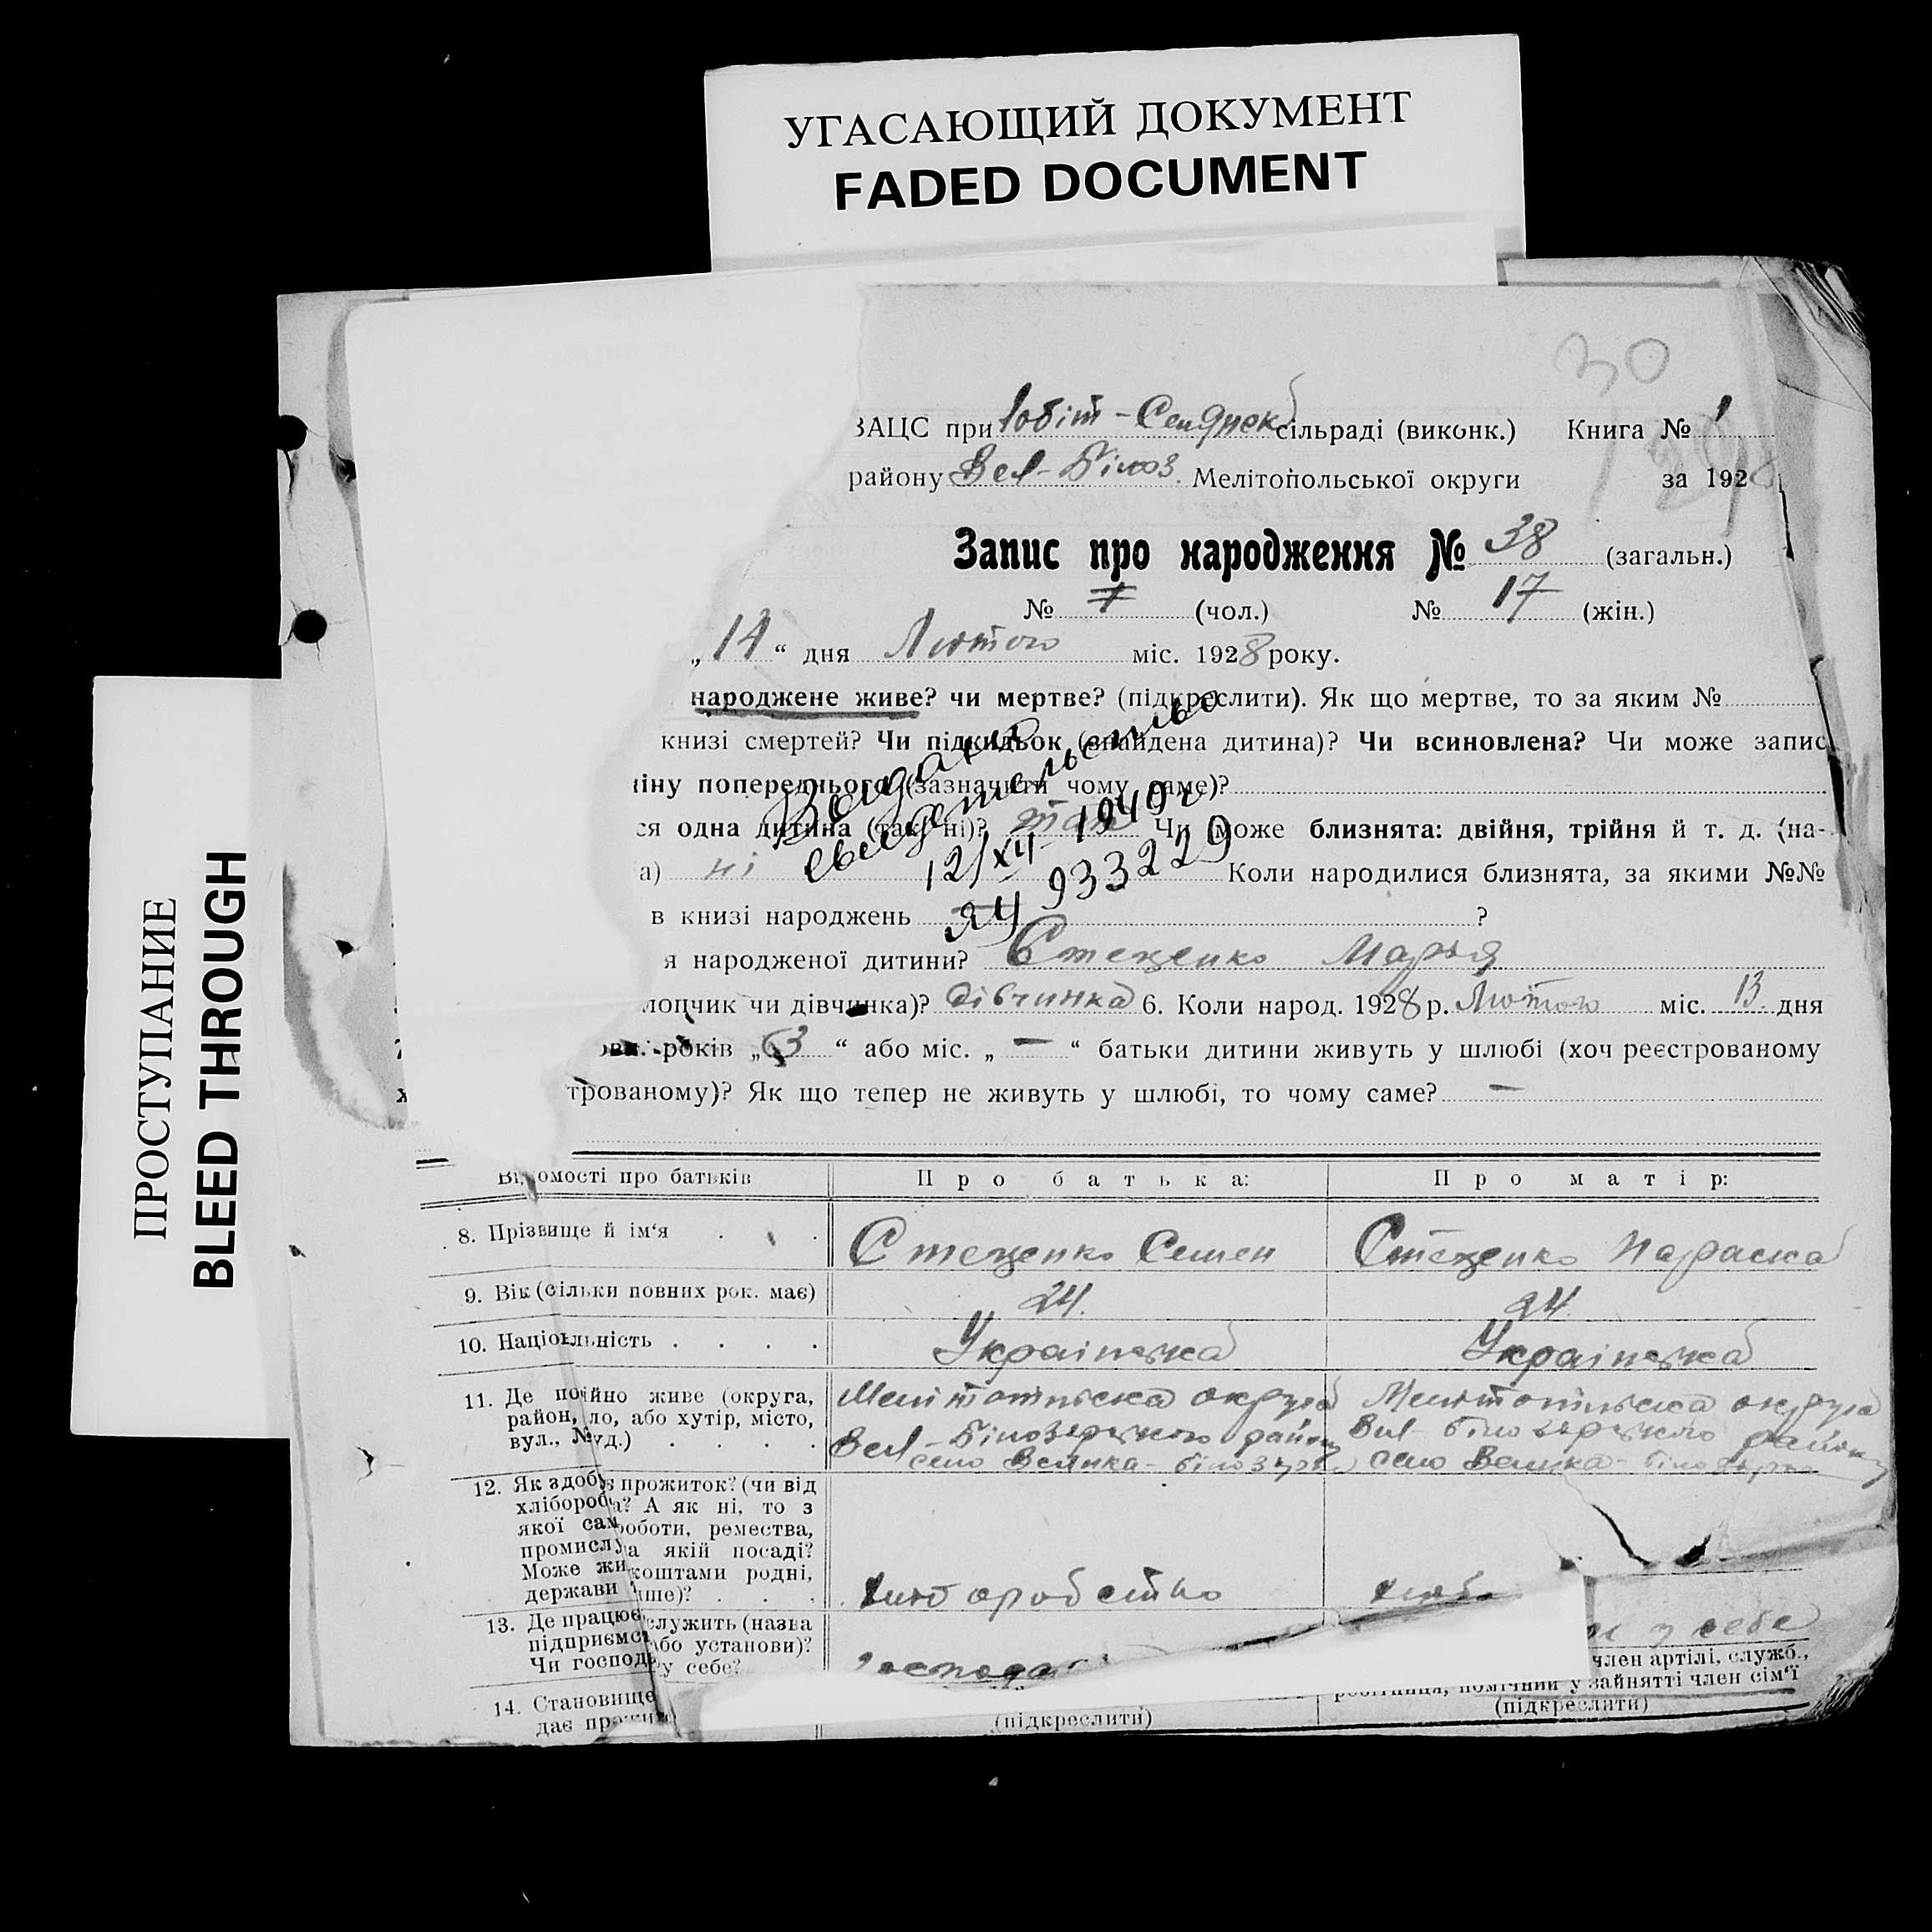 УГАСАЮЩИЙ ДОКУМЕНТ
FADED DOCUMENT
ПРОСТУПАНИЕ
BLEED THROUGH
30
ЗАЦС при сільраді (виконк.) Книга № 1
району Вел-Білоз. Мелітопольської округи за 192
Запис про народження № 38 (загальн.)
№ (чол.) № 17 (жін.)
„14“ дня Лютого міс. 1928 року.
народжене живе? чи мертве? (підкреслити). Як що мертве, то за яким №
книзі смертей? Чи підкидьок (знайдена дитина)? Чи всиновлена? Чи може запис
іну попереднього (зазначити чому саме)?
ся одна дитина (так, ні)? так Чи може близнята: двійня, трійня й т. д. (на-
а) ні Коли народилися близнята, за якими №№
в книзі народжень ?
Выдано
свидетельство
12/XII 1940 г
ЯЧ 933229
я народженої дитини? Стеценко Марья
лопчик чи дівчинка)? дівчинка 6. Коли народ. 1928 р. Лютого міс. 13. дня
років „3“ або міс. „—“ батьки дитини живуть у шлюбі (хоч реєстрованому
трованому)? Як що тепер не живуть у шлюбі, то чому саме? —
Відомості про батьків Про батька: Про матір:
8. Прізвище й ім‘я Стеценко Семен Стеценко Параска
9. Вік (сільки повних рок. має) 24. 24.
10. Націо льність Українська Українська
11. Де по ійно живе (округа,
район, ло, або хутір, місто,
вул., № уд.)
Мелітопільска округа
Вел-Білозерського район
село Велика-білозерка
Мелітопільска округа
Вел-білозерського району
село Велика-білозерка
12. Як здобу прожиток? (чи від
хлібороб а? А як ні, то з
якої сам роботи, ремества,
промислу а якій посаді?
Може жи коштами родні,
держави інше)?
хліборобство хлібо
13. Де працює служить (назва
підприємс або установи)?
Чи господ у себе?
господа у себе
14. Становище
дає прожит
(підкреслити)
член артілі, служб.,
робітниця, помічний у зайнятті член сім‘ї
(підкреслити)